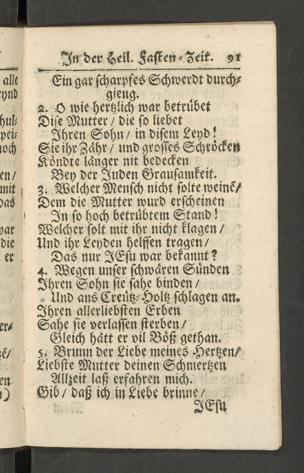 In der Heil. Fasten-Zeit. 91
Ein gar scharpfes Schwerdt durch-
gieng.
2. O wie hertzlich war betrübet
Dise Mutter / die so liebet
Ihren Sohn / in disem Leyd!
Sie ihr Zähr / und grosses Schröcken
Köndte länger nit bedecken
Bey der Juden Grausamkeit.
3. Welcher Mensch nicht solte weinē/
Dem die Mutter wurd erscheinen
In so hoch betrübtem Stand!
Welcher solt mit ihr nicht klagen /
Und ihr Leyden helffen tragen /
Das nur JEsu war bekannt?
4. Wegen unser schwären Sünden
Ihren Sohn sie sahe binden /
Und ans Creütz-Holtz schlagen an.
Ihren allerliebsten Erben
Sahe sie verlassen sterben /
Gleich hätt er vil Böß gethan.
5. Brunn der Liebe meines Hertzen /
Liebste Mutter deinen Schmertzen
Allzeit laß erfahren mich.
Gib / daß ich in Liebe brinne /
JEsu